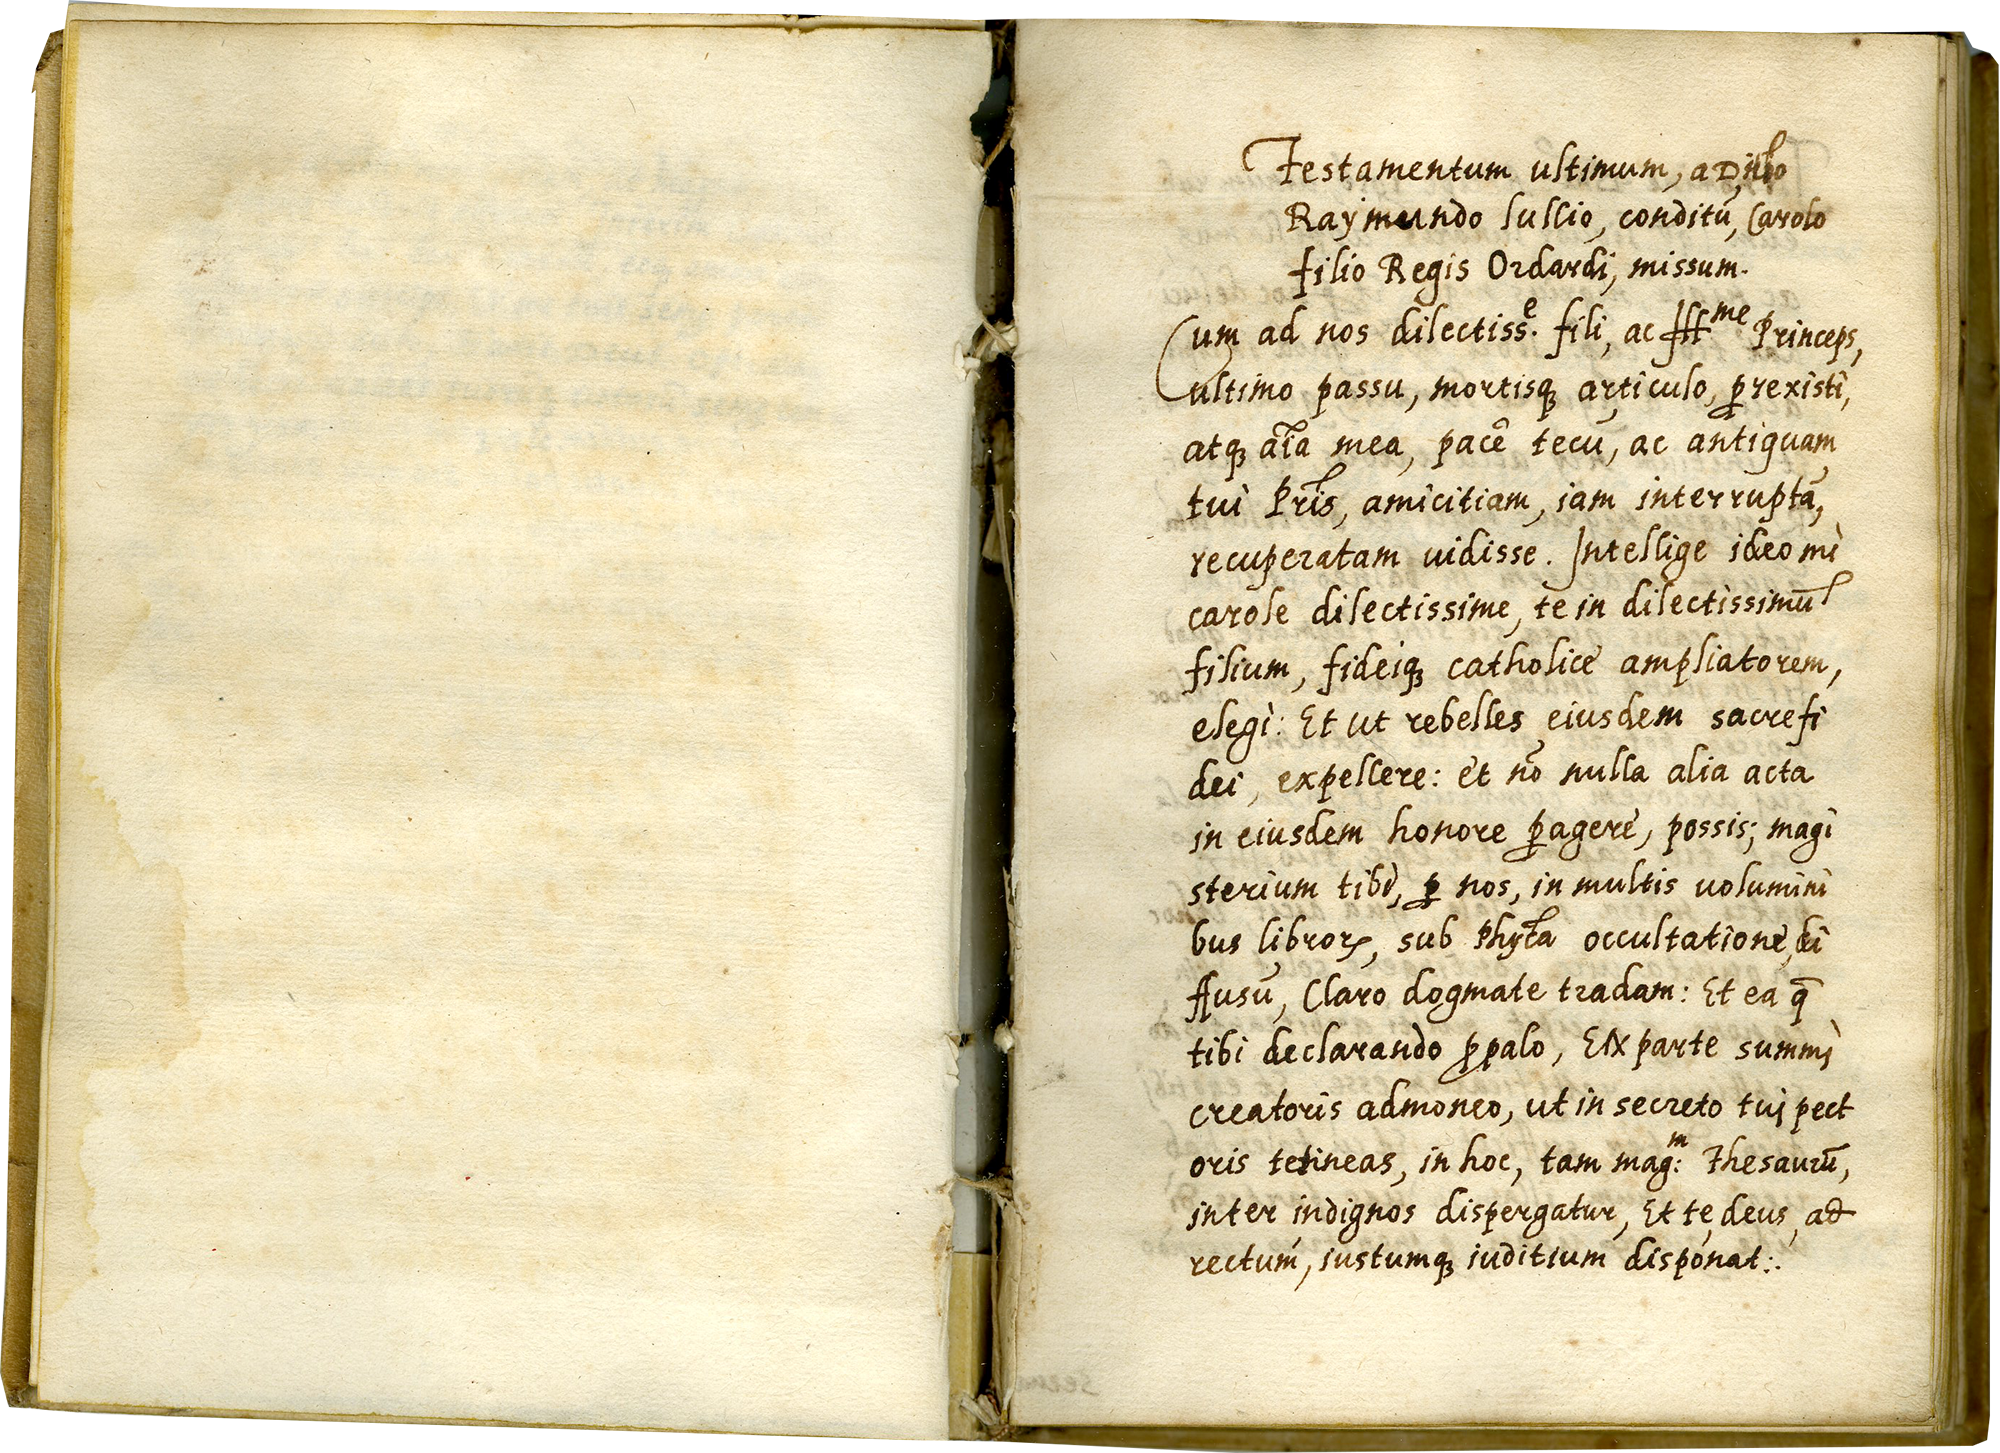 Testamentum ultimum, a Diuo
Raymundo lullio, conditū, Carolo
filio Regis Ordardi, missum.
Cum ad nos dilectiss.ᵉ fili, ac Illᵐᵉ Princeps,
ultimo passu, mortisqꝫ articulo, ꝑrexisti,
atqꝫ aīa mea, pacē tecū, ac antiquam
tui Pris̄, amicitiam, iam interruptā,
recuperatam uidisse. Intellige ideo mi
carole dilectissime, te in dilectissimū
filium, fideiqꝫ catholice ampliatorem,
elegi: Et ut rebelles eiusdem sacre fi
dei, expellere: et nō nulla alia acta
in eiusdem honore ꝑagere, possis; magi
sterium tibi, ꝑ nos, in multis uolumini
bus libroꝝ, sub Phyca occultatione, di
ffusū, Claro dogmate tradam: Et ea q̄
tibi declarando ꝓpalo, Ex parte summi
creatoris admoneo, ut in secreto tui pect
oris tetineas, in hoc, tam mag:ᵐ Thesaurū,
inter indignos dispergatur, Et te, deus, ad
rectum, iustumqꝫ iuditium disponat:.